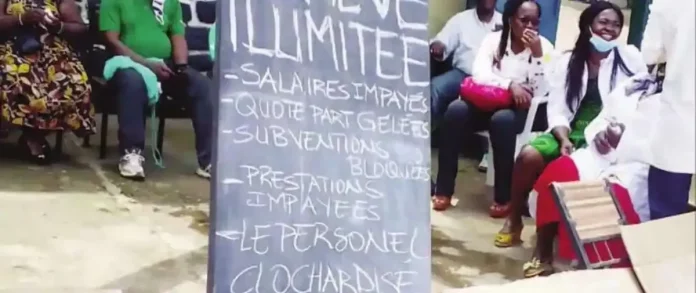 GREVE
ILLIMITEE
- SALAIRES IMPAYÉS
- QUOTE PART GELÉES
- SUBVENTIONS
BLOQUÉES
- PRESTATIONS
IMPAYÉES
- LE PERSONEL
CLOCHARDISÉ